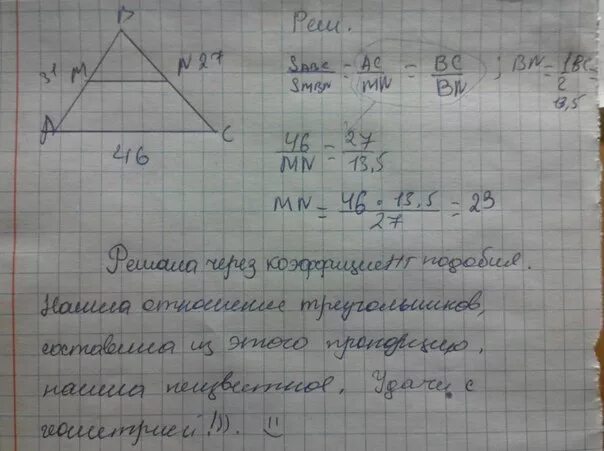 Реш.
B
31 M N 27
A C
46
SABC/SMBN = AC/MN = BC/BN ; BN = 1/2 BC =
13,5
46/MN = 27/13,5
MN = 46 · 13,5 / 27 = 23
Решала через коэффициент подобия.
Нашла отношение треугольников,
составила из этого пропорцию,
нашла неизвестное. Удачи с
геометрией!)). =)